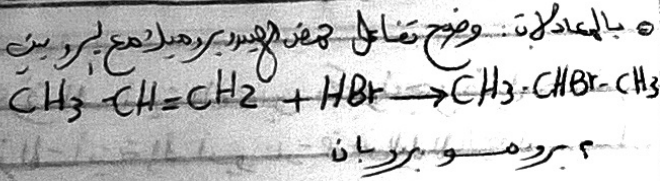 بالمعادلات: وضح تفاعل حمض الهيدروبروميك مع البروبين
CH3-CH=CH2 + HBr → CH3-CHBr-CH3
٢ بروموبروبان